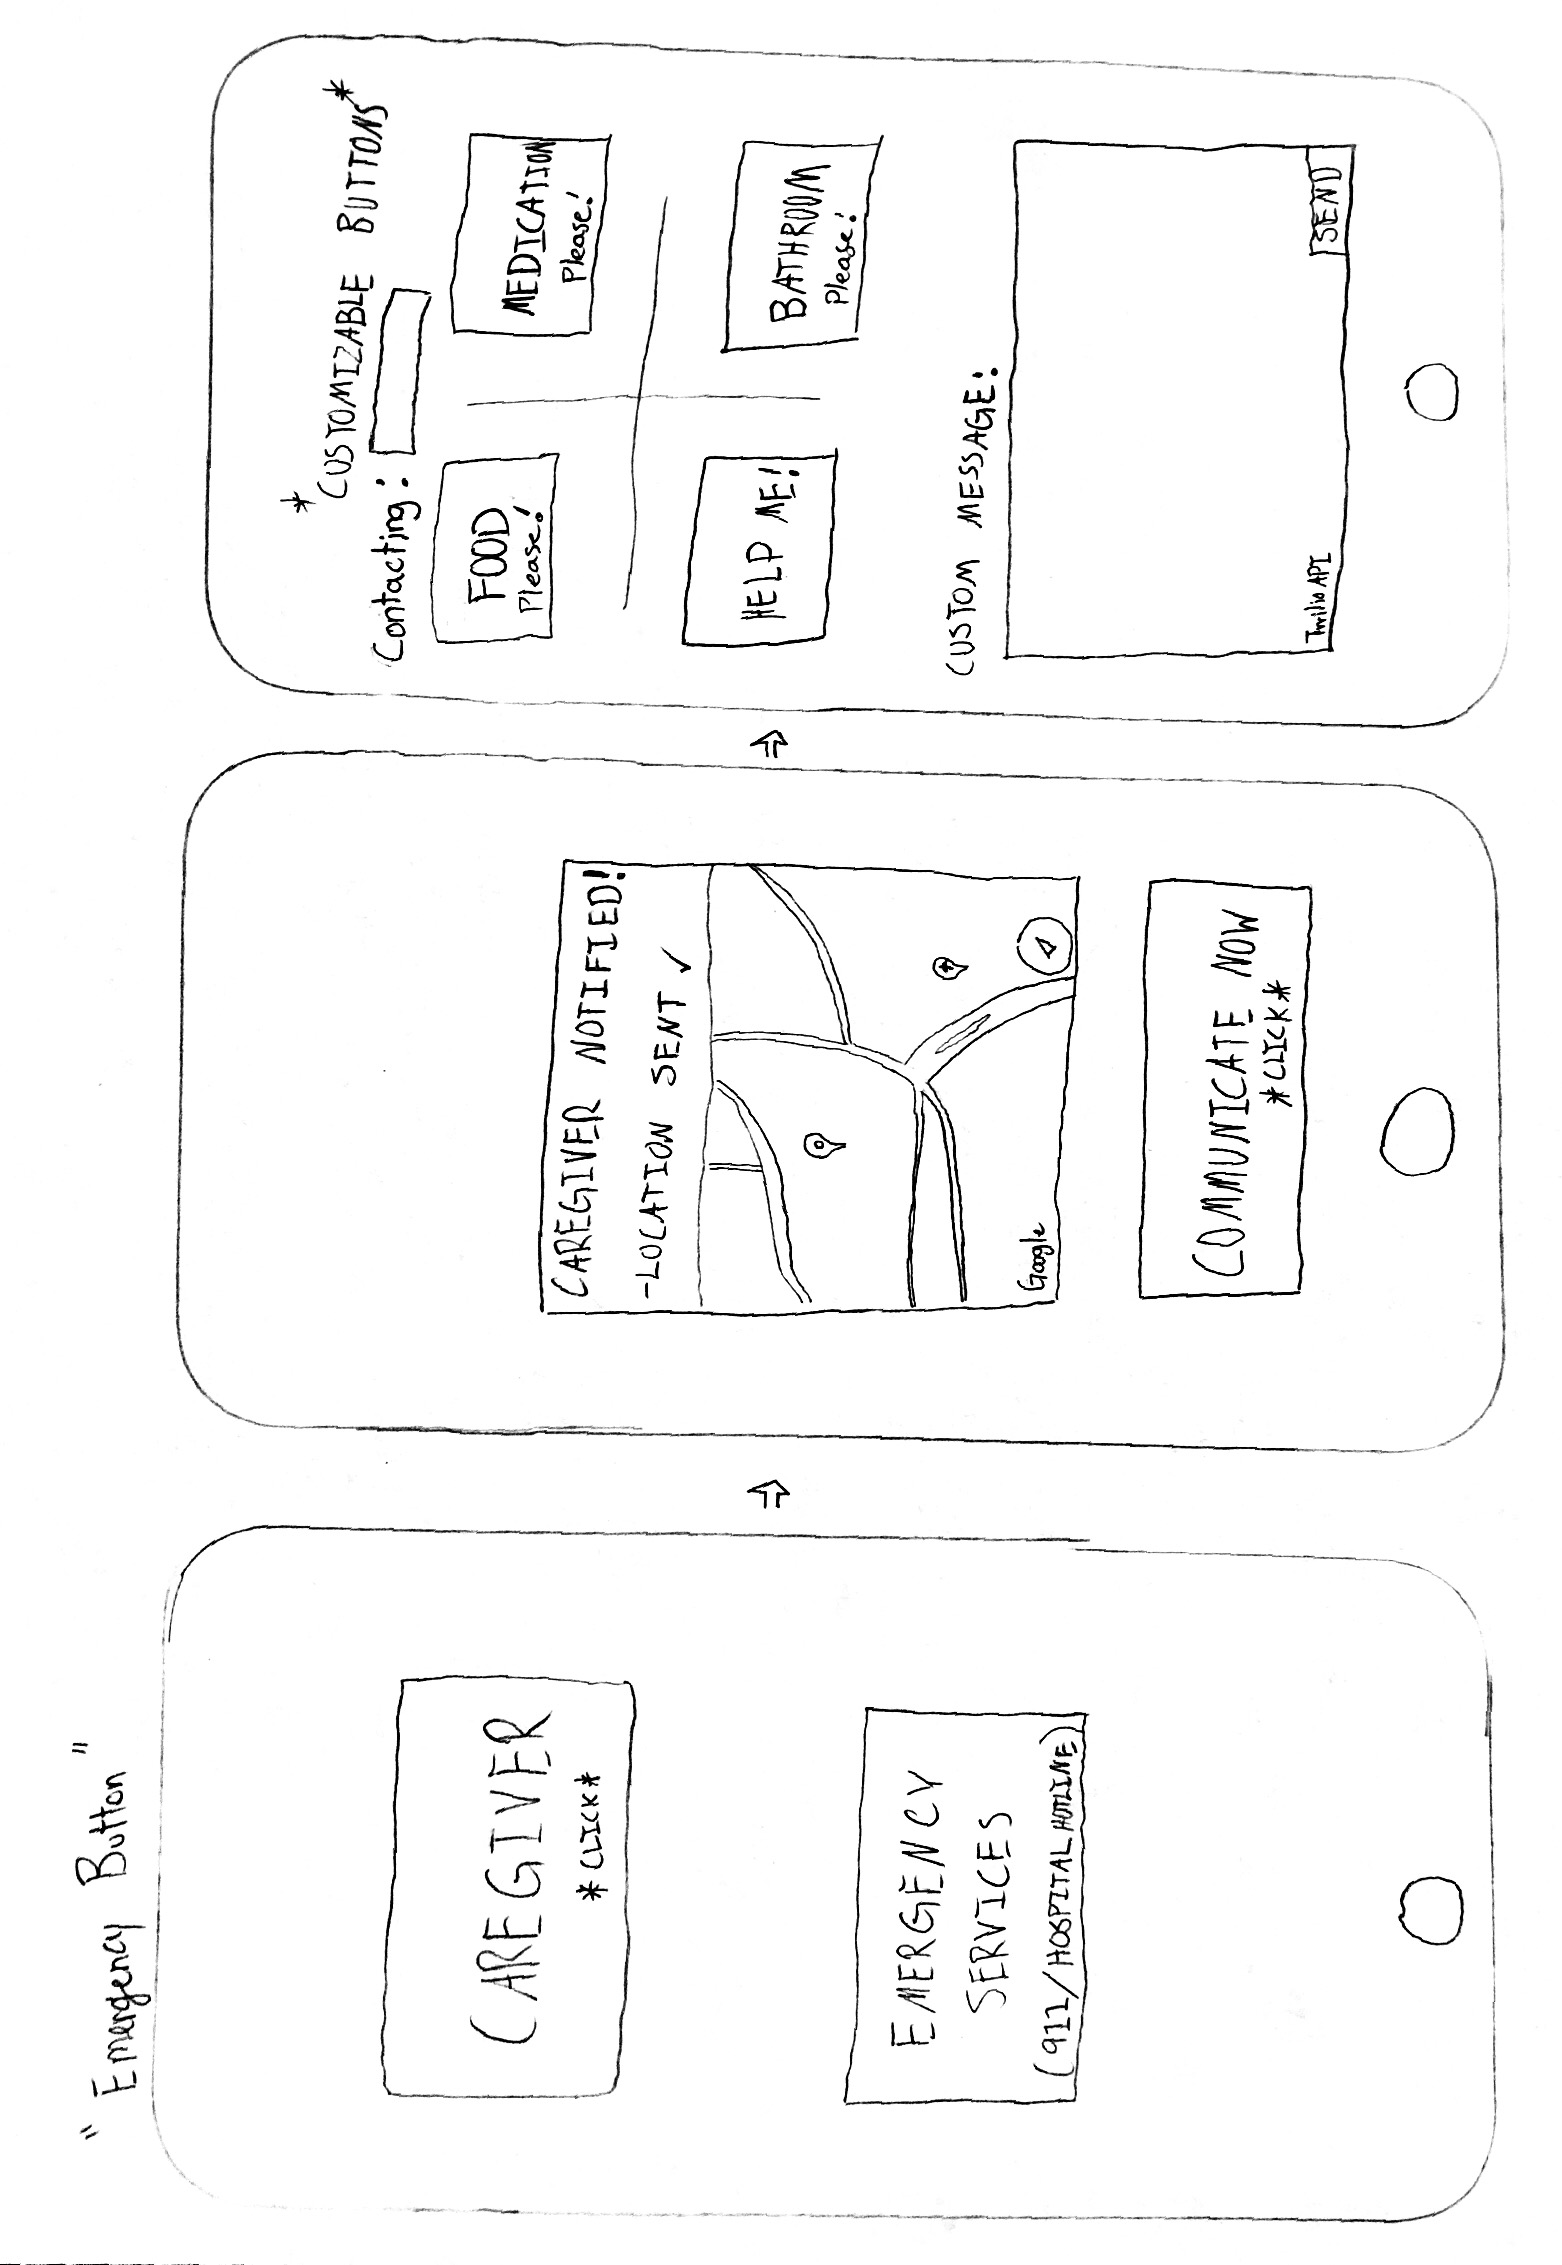 "Emergency Button"
CAREGIVER
*CLICK*
EMERGENCY
SERVICES
(911/HOSPITAL HOTLINE)
CAREGIVER NOTIFIED!
-LOCATION SENT ✓
Google
COMMUNICATE NOW
*CLICK*
* CUSTOMIZABLE BUTTONS*
Contacting:
FOOD
Please!
MEDICATION
Please!
HELP ME!
BATHROOM
Please!
CUSTOM MESSAGE:
Twilio API
SEND